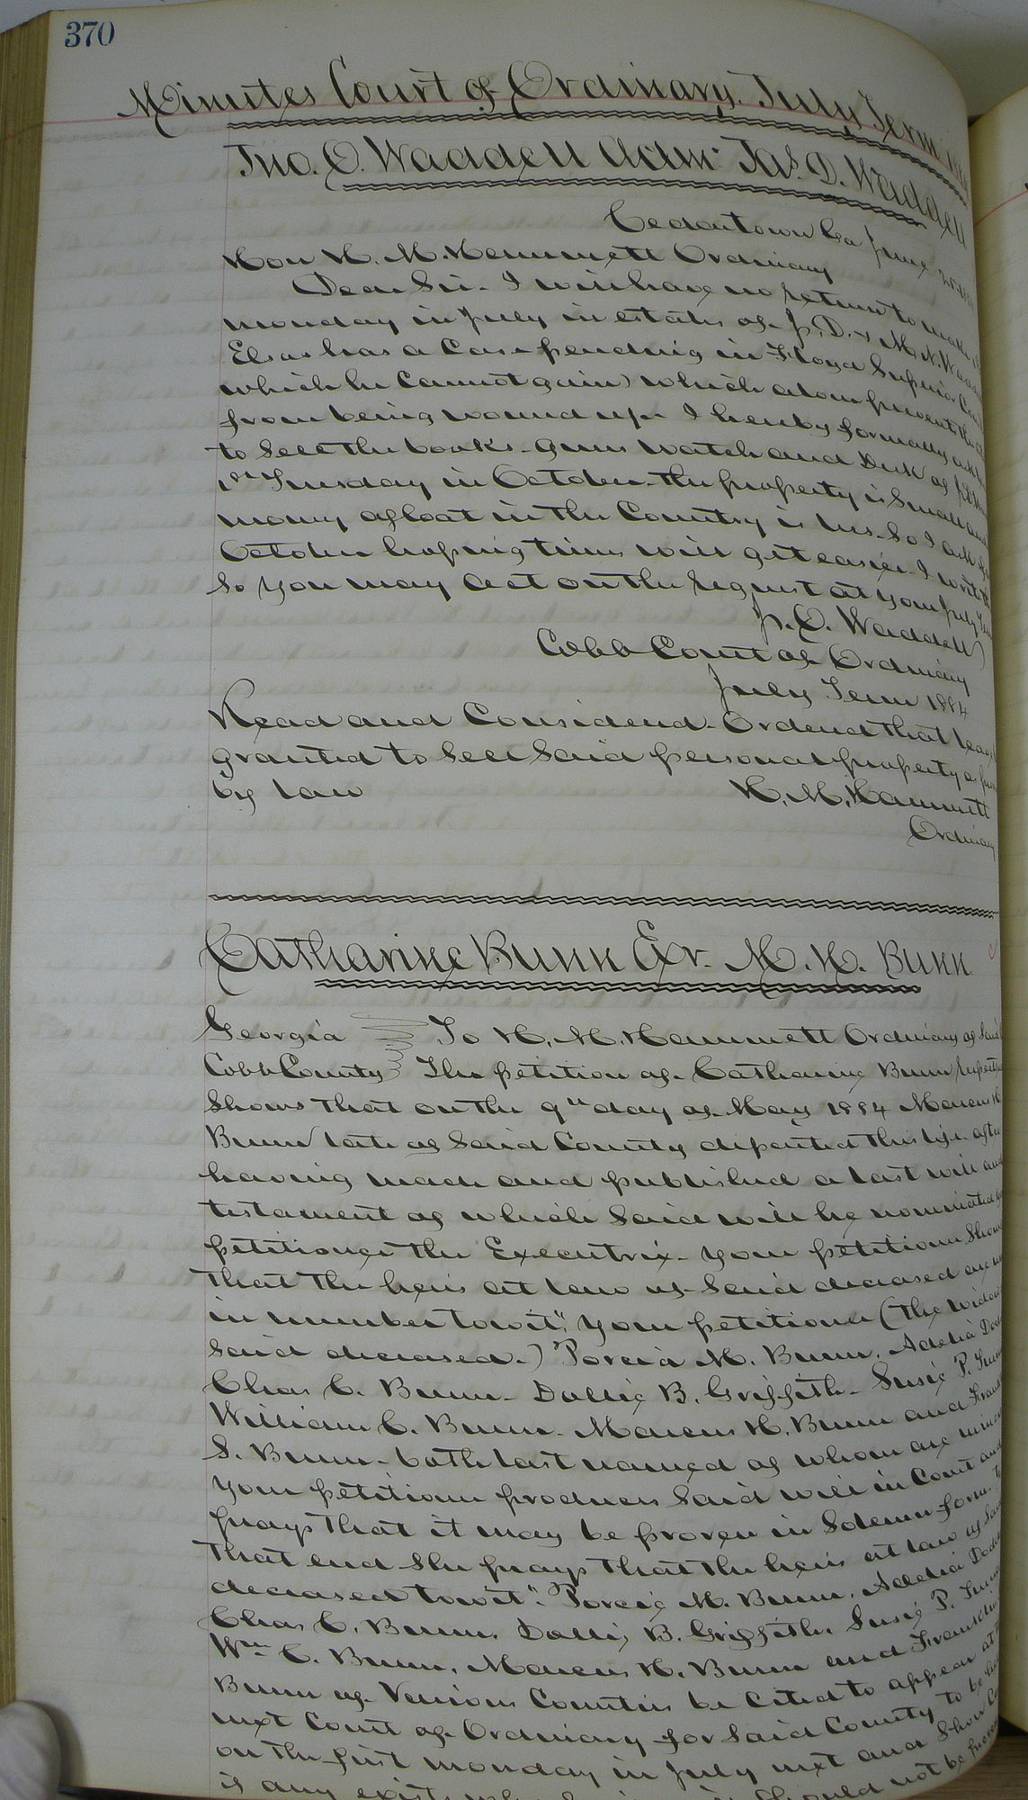 370
Minutes Court of Ordinary, July Term
Jno. O. Waddell Adm. Jas. D. Waddell
Cedartown Ga June
Hon H. M. Hammett Ordinary
Dear Sir - I will have no return to make
monday in July in estate of J. D. & M. N.
Elsas has a case pending in Floyd Superior
which he cannot gain which alone prevents the
from being wound up. I hereby formally ask
to sell the books, guns watch and Desk of
1st Tuesday in October. The property is small and
money afloat in the Country is less. So I ask
October hoping times will get easier. I write
So you may act on the request at your July
J. O. Waddell
Cobb Court of Ordinary
July Term 1884
Read and Considered. Ordered that leave
granted to sell said personal property
by law H. M. Hammett
Ordinary
Catharine Bunn Exr. M. H. Bunn
Georgia To H. M. Hammett Ordinary of Said
Cobb County The petition of Catharine Bunn
shows that on the 9th day of May 1884 Marcus H
Bunn late of said County departed this life after
having made and published a last will and
testament of which said will he nominated
petitioner the Executrix. Your petitioner shows
that the heirs at law of said deceased are
in number towit: your petitioner (the widow
said deceased.) Porcia M. Bunn, Adelia
Chas C. Bunn. Dollie B. Griffith. Susie P.
William C. Bunn. Marcus H. Bunn and
S. Bunn. both last named of whom are
Your petitioner produces said will in Court and
prays that it may be proven in solemn form. To
that end she prays that the heirs at law of said
deceased towit: Porcie M. Bunn, Adelia
Chas C. Bunn. Dolly B. Griffith. Susie P.
Wm C. Bunn, Marcus H. Bunn and
Bunn of Various Counties be cited to appear at
next Court of Ordinary for said County to be
on the first monday in July next and show
if any exists why should not be